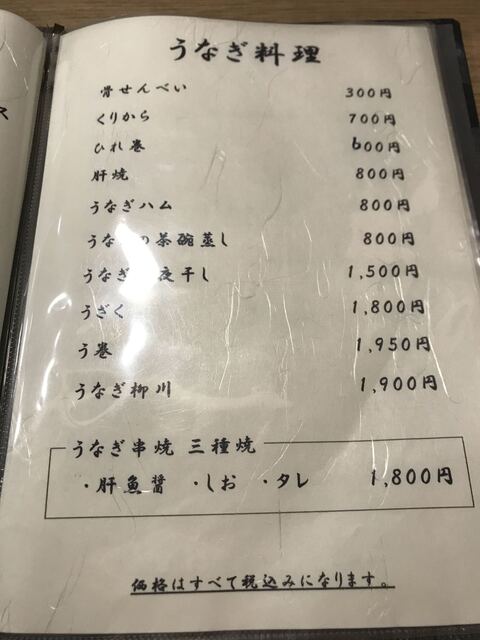 うなぎ料理
骨せんべい 300円
くりから 700円
ひれ巻 600円
肝焼 800円
うなぎハム 800円
うな の茶碗蒸し 800円
うなぎ 夜干し 1,500円
うざく 1,800円
う巻 1,950円
うなぎ柳川 1,900円
うなぎ串焼 三種焼
・肝魚醤 ・しお ・タレ 1,800円
価格はすべて税込みになります。